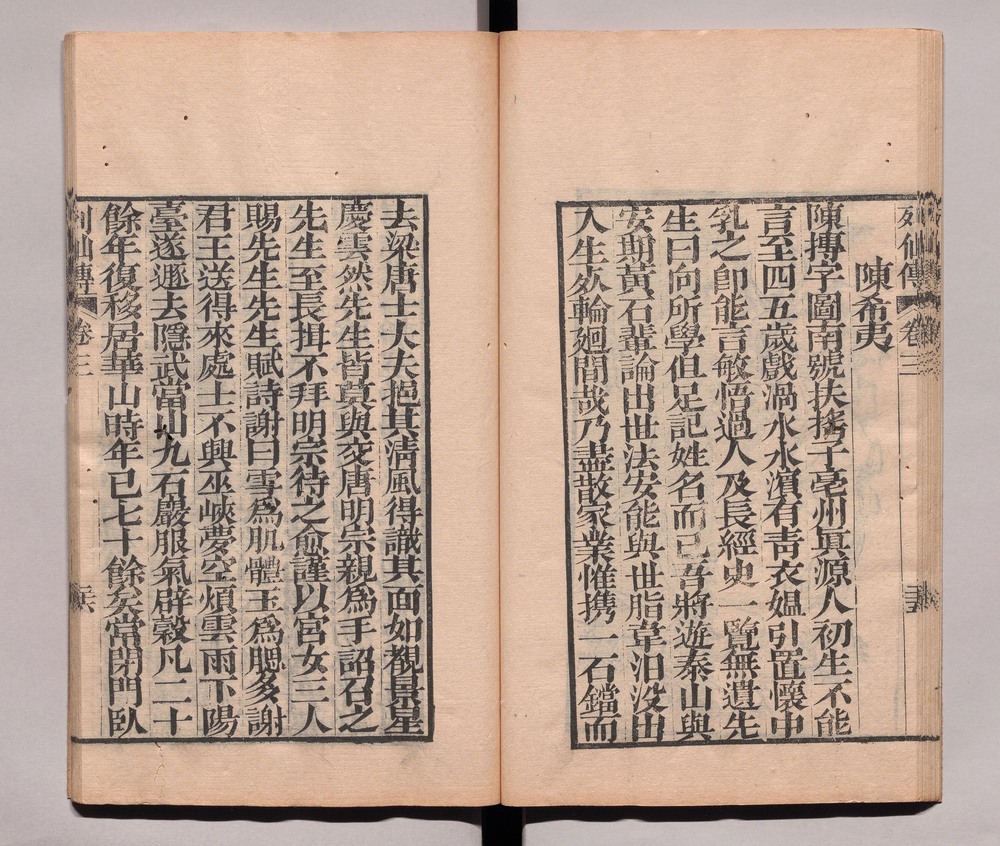 列仙傳 卷三
陳希夷
陳摶字圖南號扶搖子亳州眞源人初生不能
言至四五歲戲渦水水濵有青衣媪引置懷中
乳之卽能言敏悟過人及長經史一覽無遺先
生曰向所學但足記姓名而已吾將遊泰山與
安期黃石輩論出世法安能與世脂韋汩没出
入生死輪廻間哉乃盡散家業惟携一石鐺而
去梁唐士大夫挹其清風得識其面如覩景星
慶雲然先生皆莫與交唐明宗親爲手詔召之
先生至長揖不拜明宗待之愈謹以宮女三人
賜先生先生賦詩謝曰雪爲肌體玉爲腮多謝
君王送得來處士不興巫峽夢空煩雲雨下陽
臺遂遯去隱武當山九石巖服氣辟穀凡二十
餘年復移居華山時年已七十餘矣常閉門臥
列仙傳 卷三